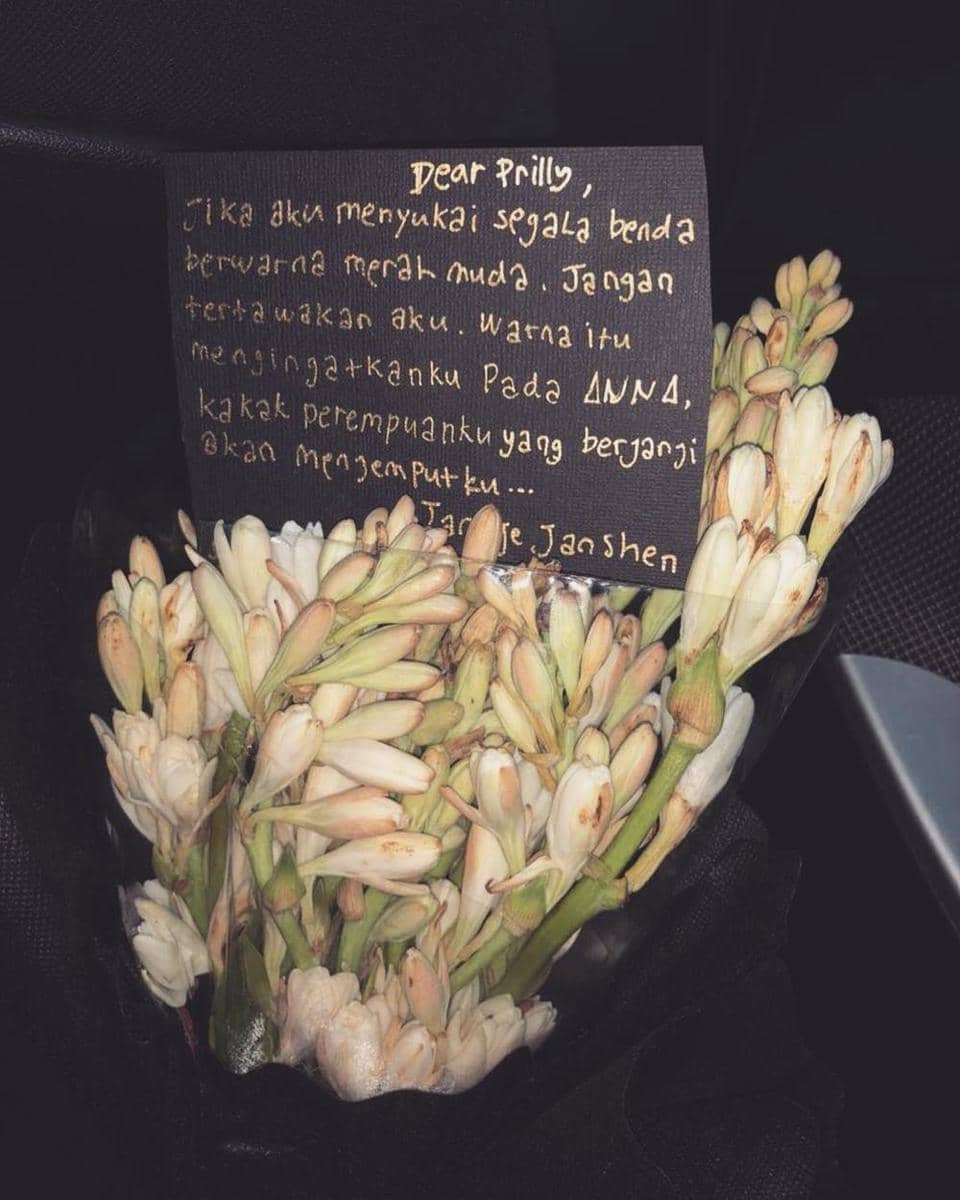 Dear Prilly,
Jika aku menyukai segala benda
berwarna merah muda. Jangan
tertawakan aku. Warna itu
mengingatkanku Pada ANNA,
kakak perempuanku yang berjanji
akan menjemputku...
Janshen